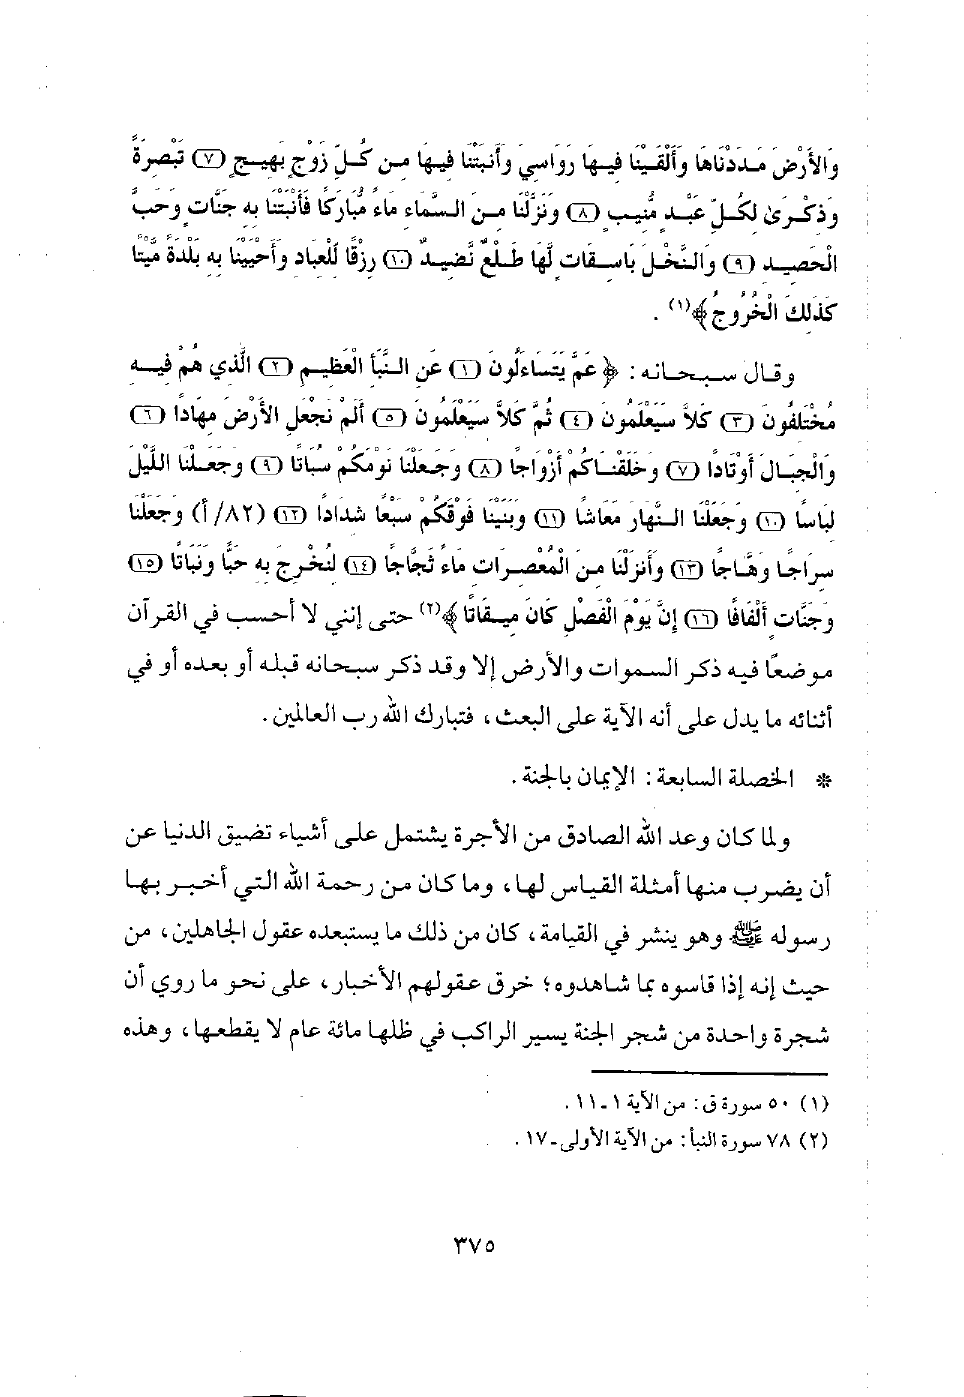 وَالأَرْضَ مَدَدْنَاهَا وَأَلْقَيْنَا فِيهَا رَوَاسِيَ وَأَنبَتْنَا فِيهَا مِن كُلِّ زَوْجٍ بَهِيجٍ (٧) تَبْصِرَةً
وَذِكْرَىٰ لِكُلِّ عَبْدٍ مُّنِيبٍ (٨) وَنَزَّلْنَا مِنَ السَّمَاءِ مَاءً مُّبَارَكًا فَأَنْبَتْنَا بِهِ جَنَّاتٍ وَحَبَّ
الْحَصِيدِ (٩) وَالنَّخْلَ بَاسِقَاتٍ لَّهَا طَلْعٌ نَّضِيدٌ (١٠) رِزْقًا لِّلْعِبَادِ وَأَحْيَيْنَا بِهِ بَلْدَةً مَّيْتًا
كَذَلِكَ الْخُرُوجُ﴾(١) .
وقال سبحانه : ﴿عَمَّ يَتَسَاءَلُونَ (١) عَنِ النَّبَأِ الْعَظِيمِ (٢) الَّذِي هُمْ فِيهِ
مُخْتَلِفُونَ (٣) كَلاَّ سَيَعْلَمُونَ (٤) ثُمَّ كَلاَّ سَيَعْلَمُونَ (٥) أَلَمْ نَجْعَلِ الأَرْضَ مِهَادًا (٦)
وَالْجِبَالَ أَوْتَادًا (٧) وَخَلَقْنَاكُمْ أَزْوَاجًا (٨) وَجَعَلْنَا نَوْمَكُمْ سُبَاتًا (٩) وَجَعَلْنَا اللَّيْلَ
لِبَاسًا (١٠) وَجَعَلْنَا النَّهَارَ مَعَاشًا (١١) وَبَنَيْنَا فَوْقَكُمْ سَبْعًا شِدَادًا (١٢) (٨٢/أ) وَجَعَلْنَا
سِرَاجًا وَهَّاجًا (١٣) وَأَنزَلْنَا مِنَ الْمُعْصِرَاتِ مَاءً ثَجَّاجًا (١٤) لِنُخْرِجَ بِهِ حَبًّا وَنَبَاتًا (١٥)
وَجَنَّاتٍ أَلْفَافًا (١٦) إِنَّ يَوْمَ الْفَصْلِ كَانَ مِيقَاتًا﴾(٢) حتى إنني لا أحسب في القرآن
موضعًا فيه ذكر السموات والأرض إلا وقد ذكر سبحانه قبله أو بعده أو في
أثنائه ما يدل على أنه الآية على البعث، فتبارك الله رب العالمين.
* الخصلة السابعة : الإيمان بالجنة .
ولما كان وعد الله الصادق من الأجرة يشتمل على أشياء تضيق الدنيا عن
أن يضرب منها أمثلة القياس لها، وما كان من رحمة الله التي أخبر بها
رسوله ﷺ وهو ينشر في القيامة، كان من ذلك ما يستبعده عقول الجاهلين، من
حيث إنه إذا قاسوه بما شاهدوه؛ خرق عقولهم الأخبار، على نحو ما روي أن
شجرة واحدة من شجر الجنة يسير الراكب في ظلها مائة عام لا يقطعها، وهذه
(١) ٥٠ سورة ق : من الآية ١ ـ ١١ .
(٢) ٧٨ سورة النبأ : من الآية الأولى ـ ١٧ .
٣٧٥